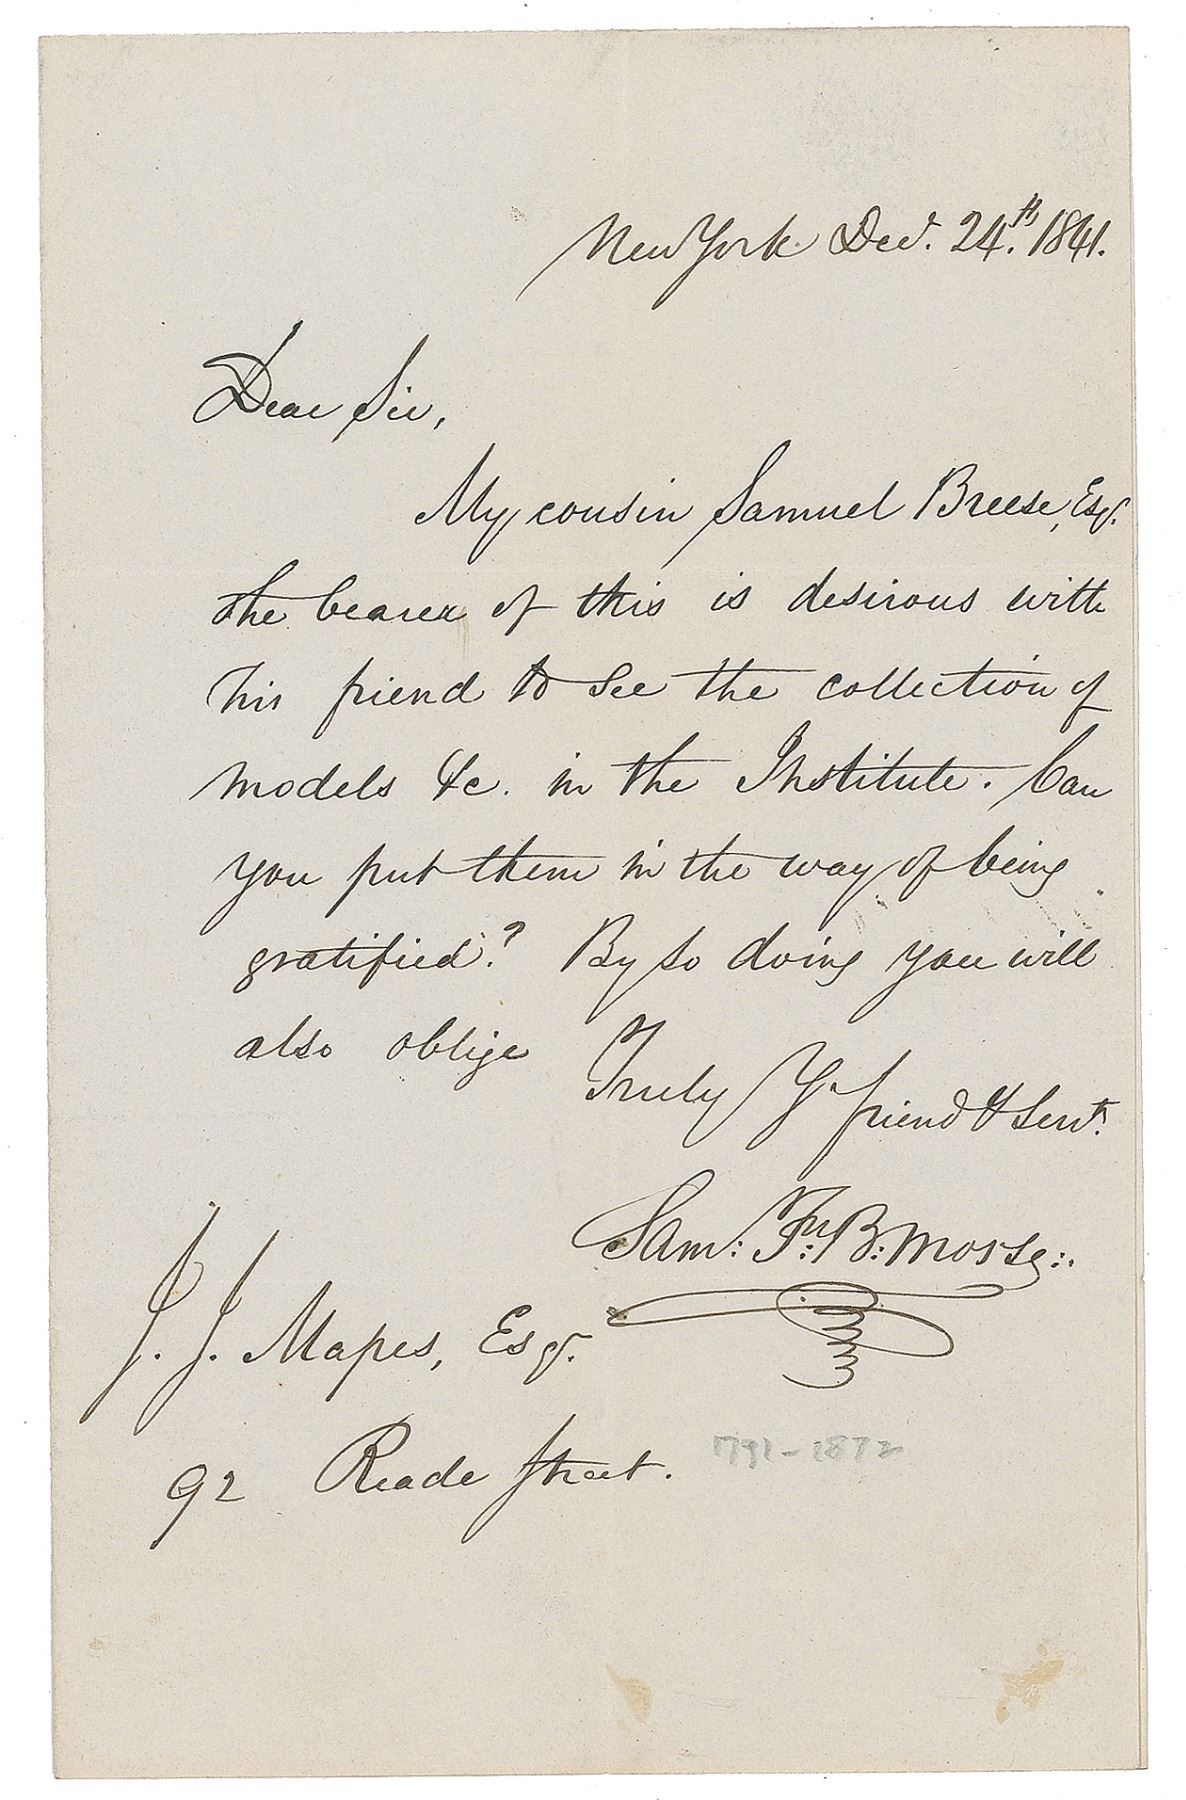 New York Dec. 24.th 1841.
Dear Sir,
My cousin Samuel Breese, Esqr.
the bearer of this is desirous with
his friend to see the collection of
models &c. in the Institute. Can
you put them in the way of being
gratified? By so doing you will
also oblige
Truly Yr friend & Servt.
Sam: F: B: Morse:.
J. J. Mapes, Esqr.
92 Reade Street.
1791-1872